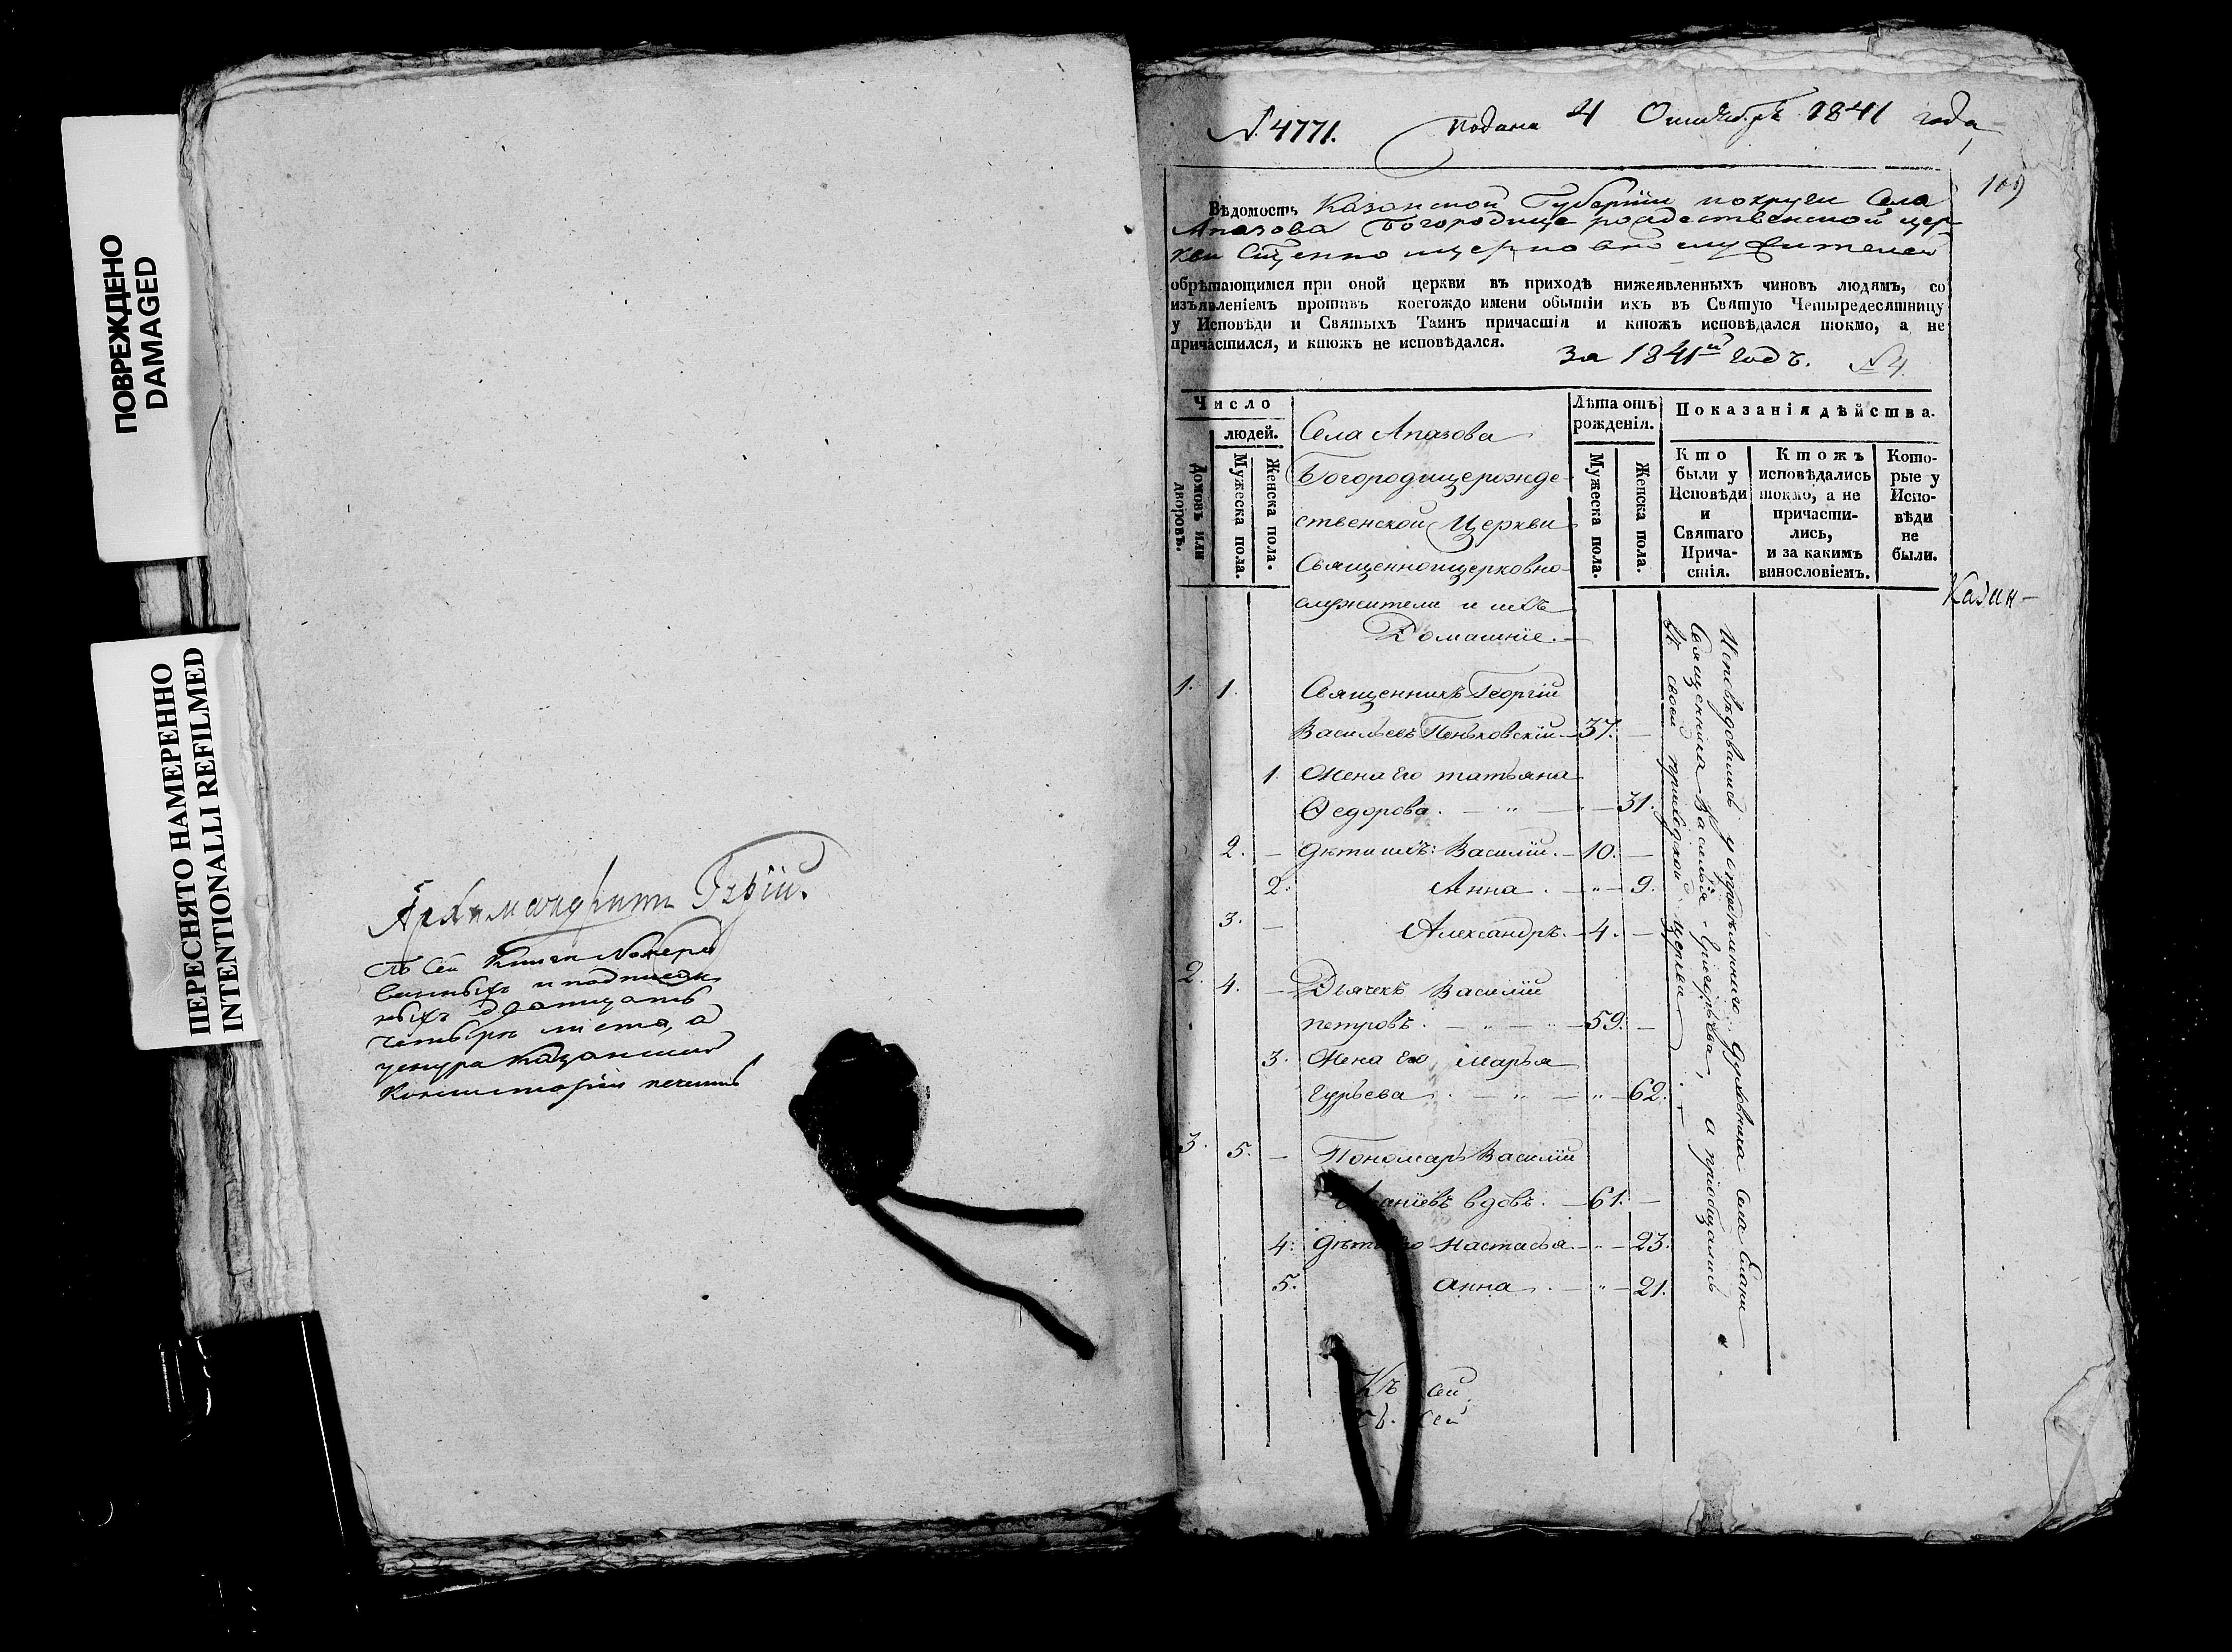 ПОВРЕЖДЕНО
DAMAGED
ПЕРЕСНЯТО НАМЕРЕННО
INTENTIONALLI REFILMED
Архимандритъ Гурій.
Въ сей книги номеро
ванныхъ и подписан
ныхъ двадцать
четыре листа, а
Казанской
Консисторіи печать
№ 4771. подана 4 Октября 1841 года
169
Вѣдомость Казанской Губерніи округи Села
Апазова Богородице рождественской цер
кви Священно церковно служителей
обрѣтающимся при оной церкви въ приходѣ нижеявленныхъ чиновъ людямъ, со
изъявленіемъ противъ коегождо имени обытіи ихъ въ Святую Четыредесятницу
у Исповѣди и Святыхъ Таинъ причастія и ктожъ исповѣдался токмо, а не
причастился, и ктожъ не исповѣдался.
За 1841й Годъ. № 4.
Число
людей.
Домовъ или дворовъ.
Мужеска пола.
Женска пола.
Лѣта отъ рожденія.
Мужеска пола.
Женска пола.
Показанія дѣйства.
Кто были у Исповѣди и Святаго Прича- стія.
Ктожъ исповѣдались токмо, а не причасти- лись, и за какимъ винословіемъ.
Кото- рые у Испо- вѣди не были.
Казан-
Села Апазова
Богородицерожде-
ственской Церкви
Священноицерковно-
служители и ихъ
Домашніе.
1. 1. Священникъ Георгій
Васильевъ Пеньковскій 37. —
1. Жена Его татьяна
Ѳедорова. — " — " — 31.
2. — дѣти ихъ: Василій. — 10. —
2. Анна . — " — 9.
3. — Александръ. — 4. —
2. 4. — Дьячекъ Василій
петровъ. — " — " — 59. —
3. Жена Его, Марья
Гурьева . — " — " — 62.
3. 5. — Пономарь Василій
вдовъ. — 61. —
4. дѣти Его Настасья — " — 23.
5. анна . — " — 21.
Исповѣдовались у опредѣленнаго духовника Села Елани
Священника Василія Григорьева, а приобщались
въ своей приходской церкви
Къ сей
сей